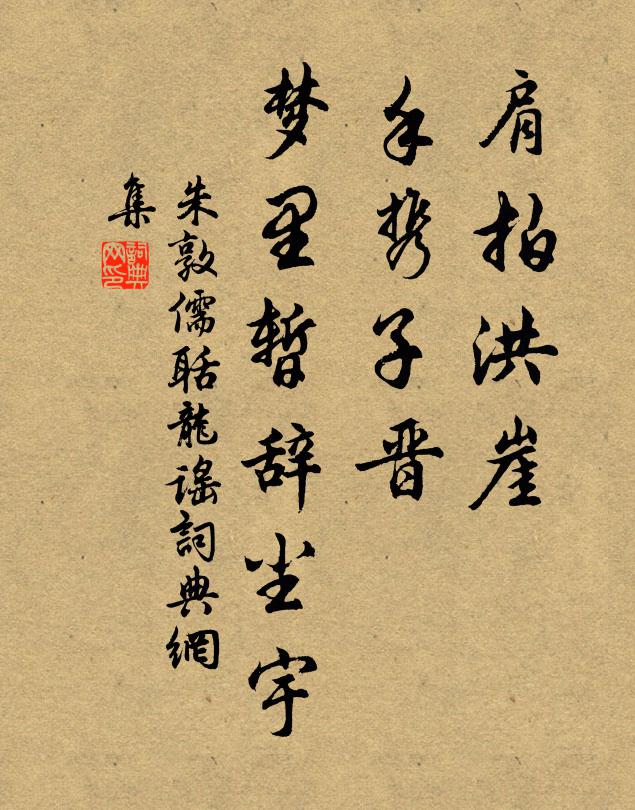 肩拍洪崖
手携子晋
梦里暂辞尘宇
朱敦儒聒龍谣詞典網
集
詞典
网印